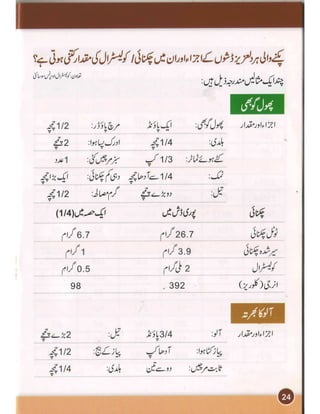 پکنے والی ہر دلعزیز ڈشوں کے اجزاء اور ان میں چکنائی / کولیسٹرال کی مقدار کتنی ہوتی ہے؟
چند ایک مثالیں مندرجہ ذیل ہیں:
پھول گوبھی
اجزاء اور مقدار
پھول گوبھی: ایک پاؤنڈ مرچ پاؤڈر: 1/2 چمچہ
ہلدی: 1/4 چمچہ ادرک پسا ہوا: 2 چمچے
کٹے ہوئے ٹماٹر: 1/3 کپ سبز مرچیں کٹی: 1 عدد
نمک: 1/4 سے آدھا چمچہ دہی کم چکنائی: ایک بڑا چمچہ
تیل: دو بڑے چمچے گرم مصالحہ: 1/2 چمچہ
چکنائی پوری ڈش میں ایک حصہ میں (1/4)
ٹوٹل چکنائی 26.7 گرام 6.7 گرام
سیر شدہ چکنائی 3.9 گرام 1 گرام
کولیسٹرال 2 ملی گرام 0.5 گرام
انرجی (کلوریز) 392 98
آلو کا بھرتہ
اجزاء اور مقدار
آلو: 3/4 پاؤنڈ تیل: 2 بڑے چمچے
پیاز کٹا ہوا: آدھا کپ پیاز کے بیج: 1/2 چمچہ
ثابت مرچیں: دو سے تین ہلدی: 1/4 چمچہ
24